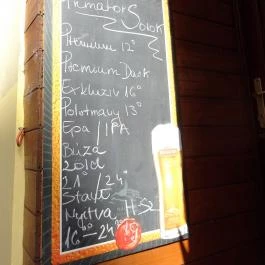 Primator Sörök
Premium 12°
Premium Dark
Exkluziv 16°
Polotmavy 13°
Epa / IPA
Búza
Zöld
21°/24°
Stout
Nyitva H-Sz
16⁰⁰-24⁰⁰